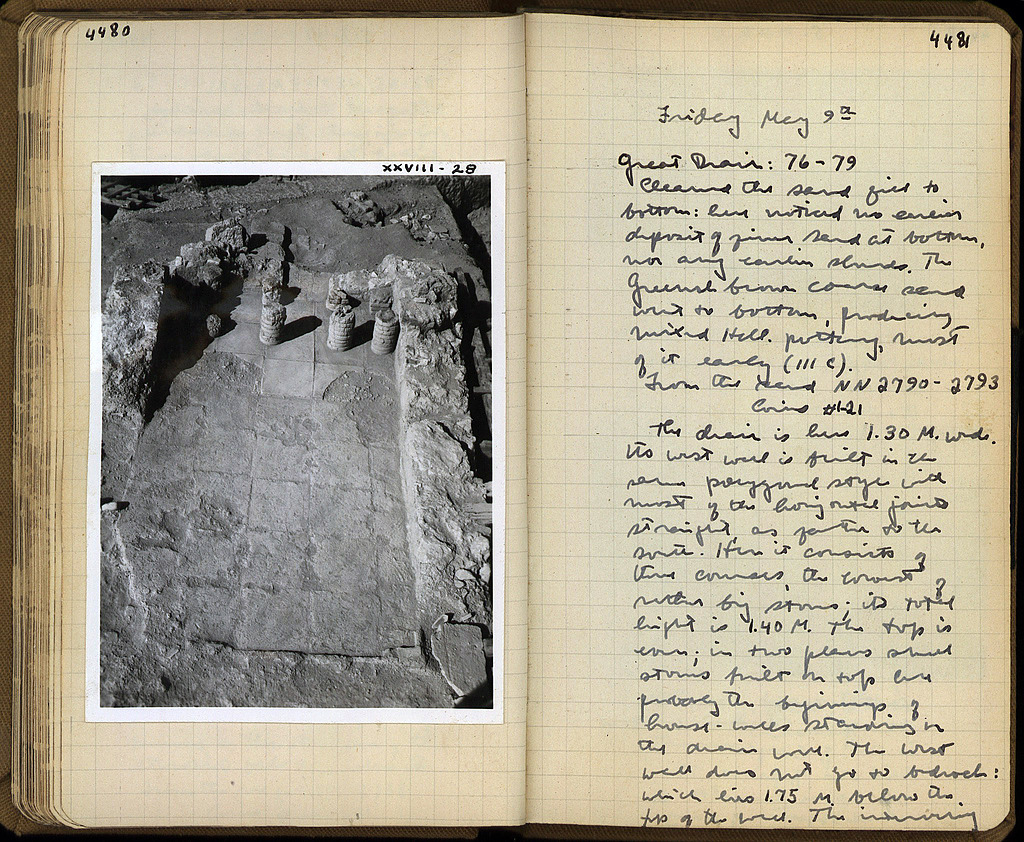 4480
XXVIII - 28
4481
Friday May 9th
Great Drain: 76-79
Cleaned the sand fill to
bottom: here noticed no earlier
deposit of finer sand at bottom,
nor any earlier sherds. The
Greenish brown coarse sand
went to bottom, producing
mixed Hell. pottery, most
of it early (III c).
From the sand NN 2790-2793
Coins #1-21
The drain is here 1.30 M. wide.
Its west wall is built in the
same polygonal style with
most of the horizontal joints
straight, as farther to the
south. Here it consists of
three courses, the lowest of
rather big stones; its total
height is 1.40 M. The top is
even; in two places small
stones built on top are
probably the beginnings of
house-walls standing on
the drain wall. The west
wall does not go to bedrock:
which lies 1.75 M below the
top of the wall. The